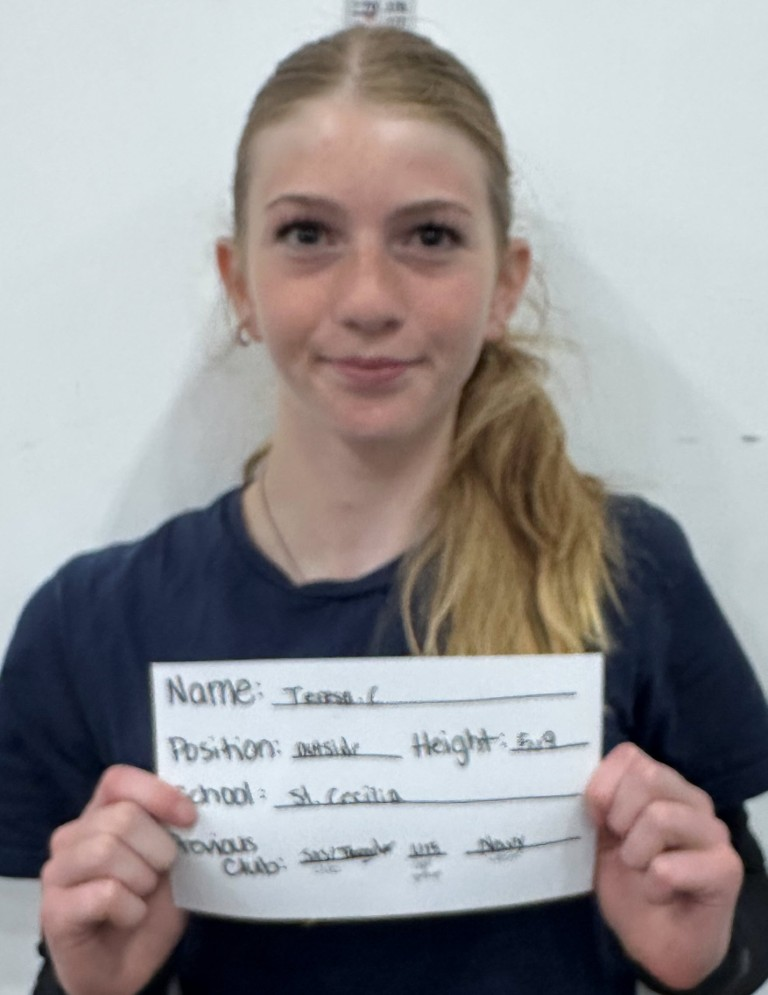 Name: Teresa. C
Position: outside Height: 5.9
School: St. Cecilia
Previous
Club: U15 Navy